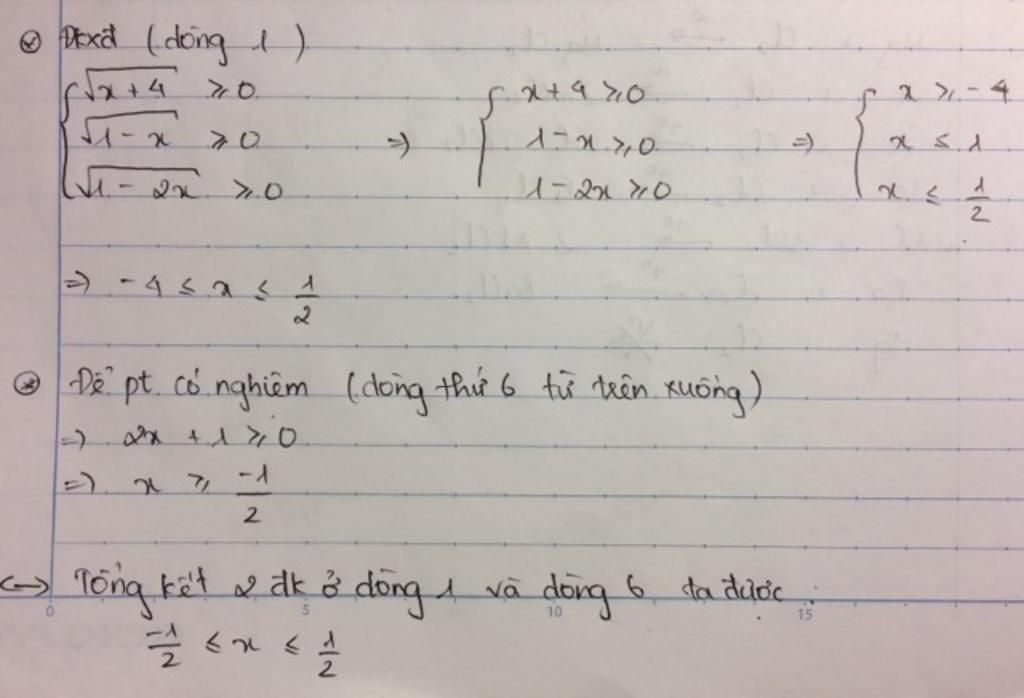 Đkxđ (dòng 1)
{ √(x+4) ≥ 0 ⇒ { x+4 ≥ 0 ⇒ { x ≥ -4
√(1-x) ≥ 0 1-x ≥ 0 x ≤ 1
√(1-2x) ≥ 0 1-2x ≥ 0 x ≤ 1/2
⇒ -4 ≤ x ≤ 1/2
Để pt có nghiệm (dòng thứ 6 từ trên xuống)
⇒ 2x + 1 ≥ 0
⇒ x ≥ -1/2
↔ Tổng kết 2 đk ở dòng 1 và dòng 6 ta được:
0 5 10 15
-1/2 ≤ x ≤ 1/2